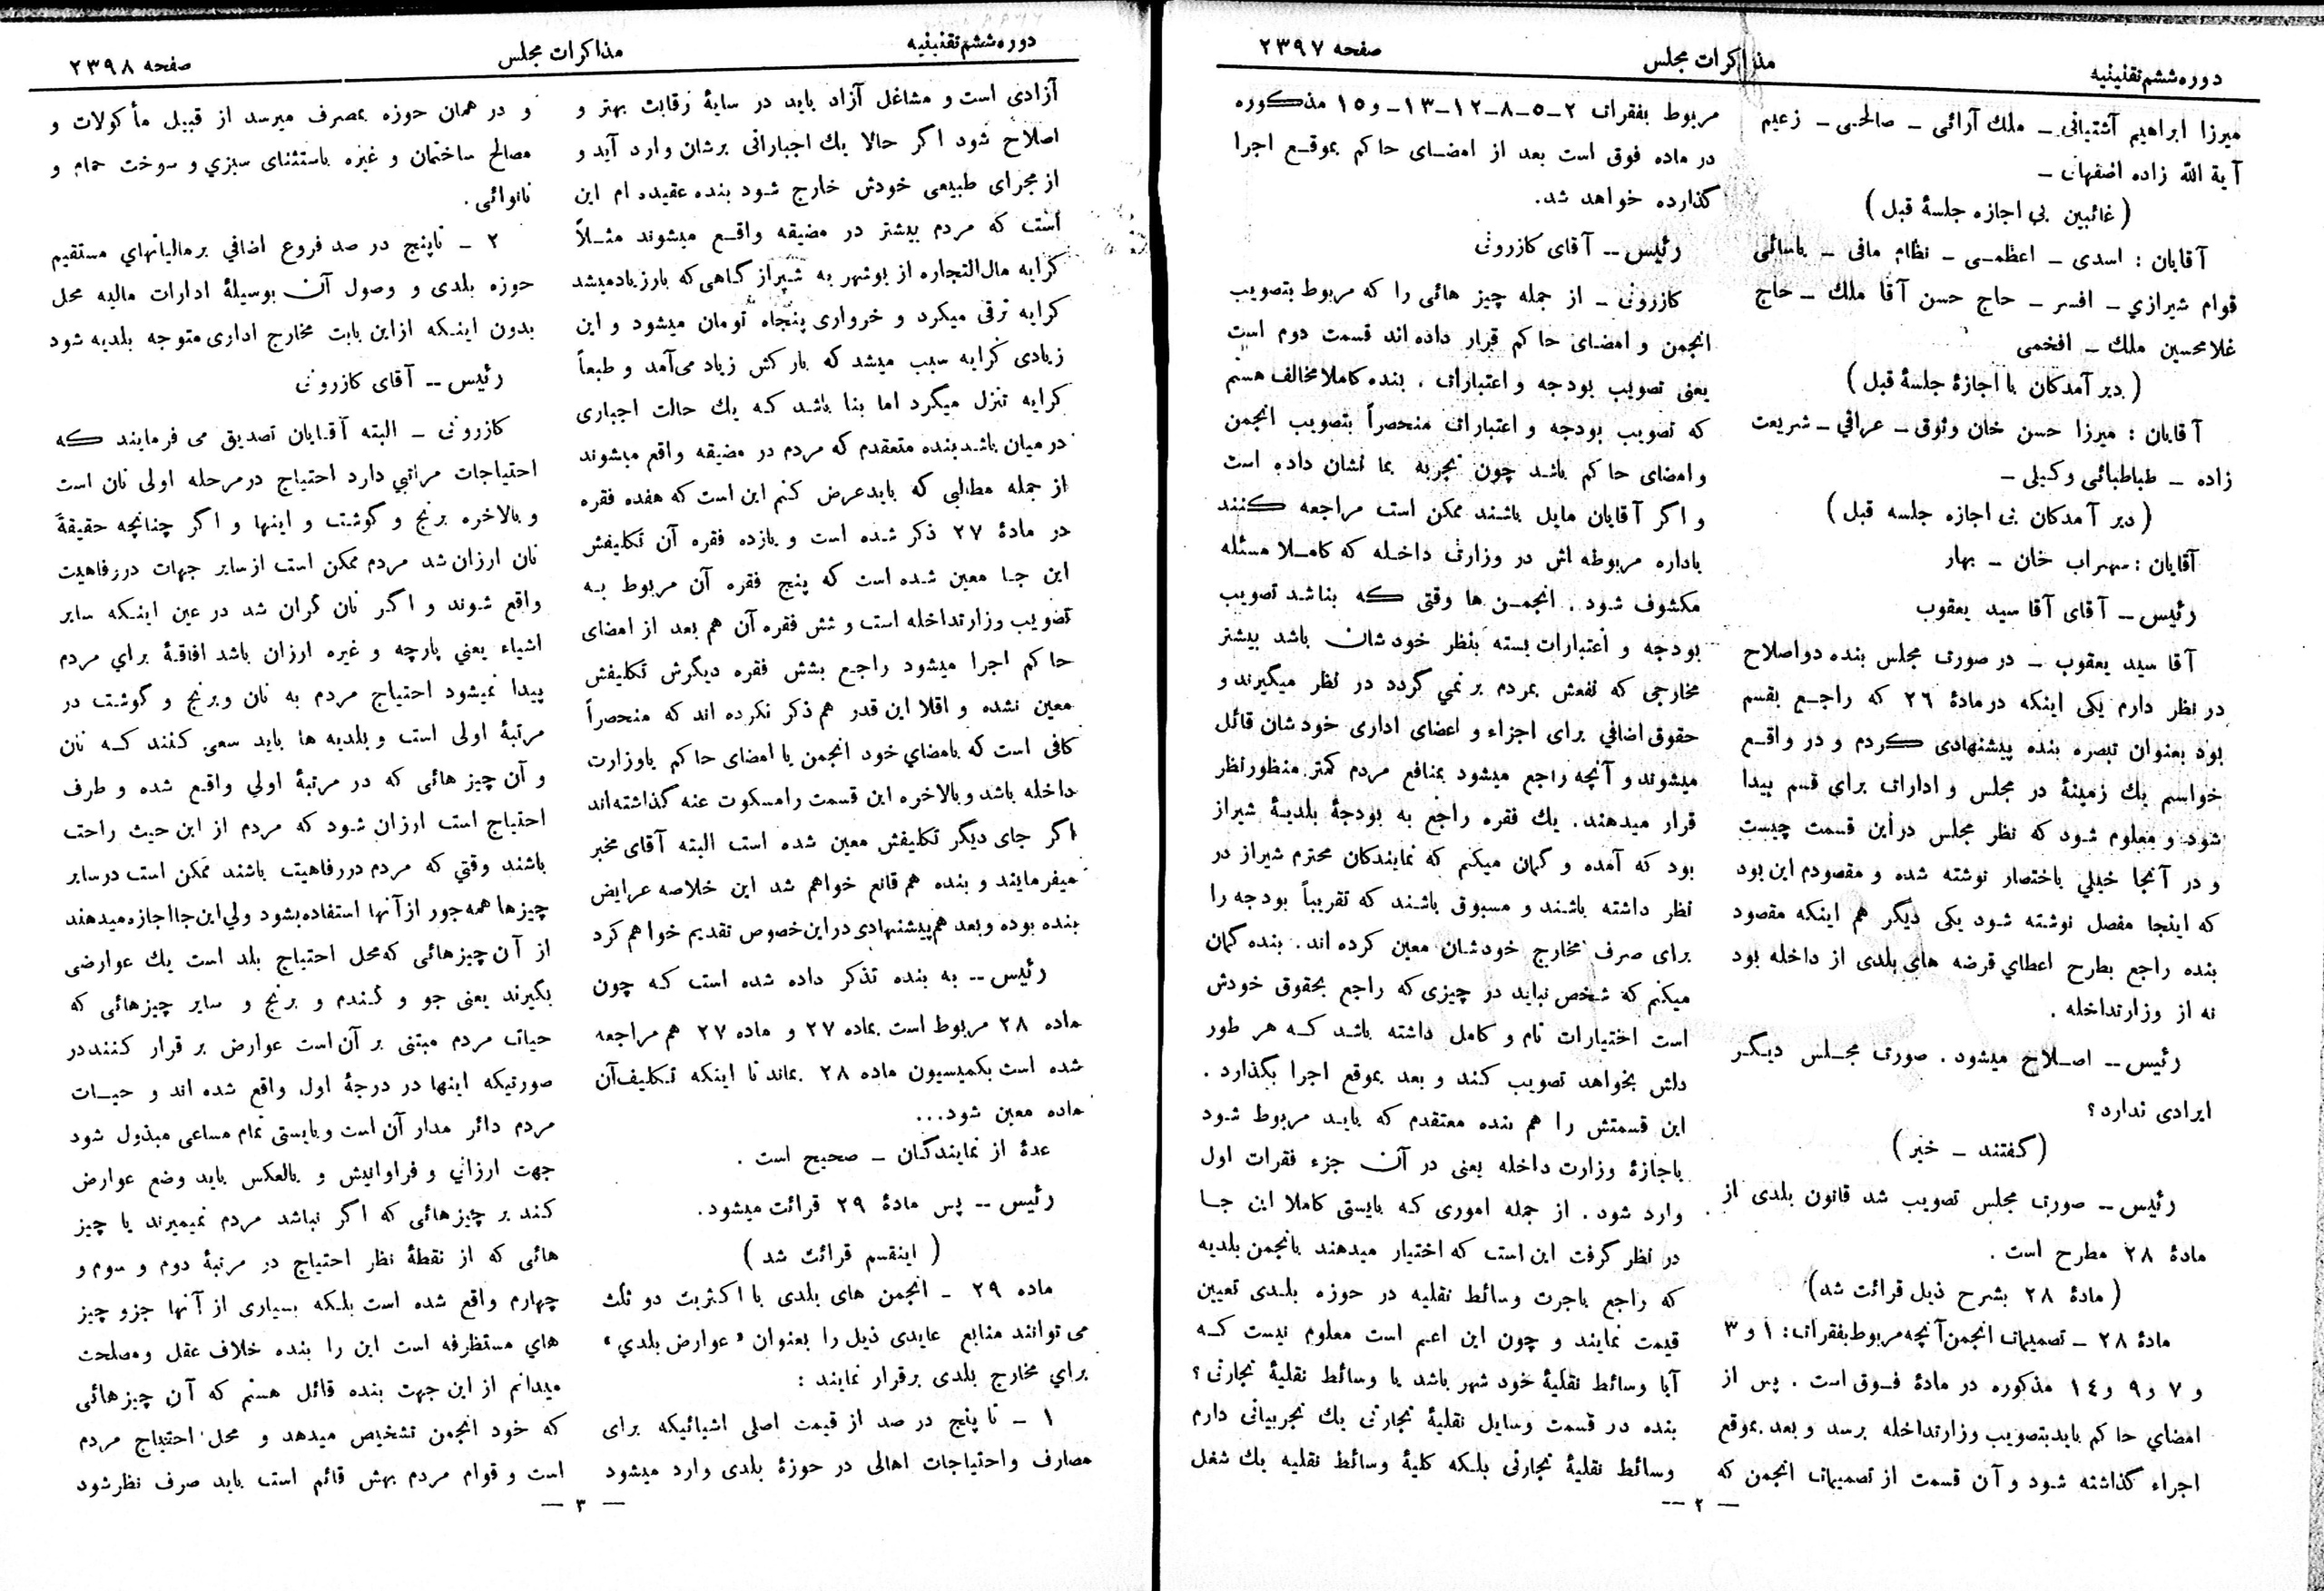 دوره ششم تقنینیه
مذاکرات مجلس
صفحه ۲۳۹۷
میرزا ابراهیم آشتیانی ـ ملك آرائی ـ صالحی ـ زعیم
آیة الله زاده اصفهانی ـ
(غائبین بی اجازه جلسهٔ قبل)
آقایان : اسدی ـ اعظمی ـ نظام مافی ـ یاسائی
قوام شیرازي ـ افسر ـ حاج حسن آقا ملك ـ حاج
غلامحسین ملك ـ افخمی
(دیر آمدکان با اجازهٔ جلسهٔ قبل)
آقایان : میرزا حسن خان وثوق ـ عراقي ـ شریعت
زاده ـ طباطبائی وکیلی ـ
(دیر آمدکان بی اجازه جلسه قبل)
آقایان : سهراب خان ـ بهار
رئیس ــ آقای آقا سید یعقوب
آقا سید یعقوب ـ در صورت مجلس بنده دواصلاح
در نظر دارم یکی اینکه درمادهٔ ۲۶ که راجع بقسم
بود بعنوان تبصره بنده پیشنهادی کردم و در واقع
خواستم یك زمینهٔ در مجلس و ادارات براي قسم پیدا
شود و معلوم شود که نظر مجلس دراین قسمت چیست
و در آنجا خیلي باختصار نوشته شده و مقصودم این بود
که اینجا مفصل نوشته شود یکی دیگر هم اینکه مقصود
بنده راجع بطرح اعطاي قرضه هاي بلدی از داخله بود
نه از وزارتداخله .
رئیس ــ اصلاح میشود . صورت مجلس دیگر
ایرادی ندارد ؟
(گفتند ـ خیر)
رئیس ــ صورت مجلس تصویب شد قانون بلدی از
مادهٔ ۲۸ مطرح است .
(مادهٔ ۲۸ بشرح ذیل قرائت شد)
مادهٔ ۲۸ ـ تصمیمات انجمن آنچه مربوط بفقرات : ۱ و ۳
و ۷ و ۹ و ۱۴ مذکوره در مادهٔ فوق است . پس از
امضاي حاکم باید بتصویب وزارتداخله برسد و بعد بموقع
اجراء گذاشته شود و آن قسمت از تصمیمات انجمن که
مربوط بفقرات ۲ـ۵ـ۸ـ۱۲ـ۱۳ـ و۱۵ مذکوره
در ماده فوق است بعد از امضای حاکم بموقع اجرا
گذارده خواهد شد.
رئیس ــ آقای کازرونی
کازرونی ـ از جمله چیز هائی را که مربوط بتصویب
انجمن و امضای حاکم قرار داده اند قسمت دوم است
یعنی تصویب بودجه و اعتبارات . بنده کاملا مخالف هستم
که تصویب بودجه و اعتبارات منحصراً بتصویب انجمن
و امضای حاکم باشد چون تجربه بما نشان داده است
و اگر آقایان مایل باشند ممکن است مراجعه کنند
باداره مربوطه اش در وزارت داخله که کاملا مسئله
مکشوف شود . انجمن ها وقتی که بناشد تصویب
بودجه و اعتبارات بسته بنظر خودشان باشد بیشتر
مخارجی که نفعش بمردم بر نمي گردد در نظر میگیرند و
حقوق اضافي برای اجزاء و اعضای اداری خودشان قائل
میشوند و آنچه راجع میشود بمنافع مردم کمتر منظور نظر
قرار میدهند . یك فقره راجع به بودجهٔ بلدیهٔ شیراز
بود که آمده و گمان میکنم که نمایندکان محترم شیراز در
نظر داشته باشند و مسبوق باشند که تقریباً بودجه را
برای صرف مخارج خودشان معین کرده اند . بنده گمان
میکنم که شخص نباید در چیزی که راجع بحقوق خودش
است اختیارات تام و کامل داشته باشد که هر طور
دلش بخواهد تصویب کند و بعد بموقع اجرا بگذارد .
این قسمتش را هم بنده معتقدم که باید مربوط شود
باجازهٔ وزارت داخله یعنی در آن جزء فقرات اول
وارد شود . از جمله اموری که بایستی کاملا این جا
در نظر گرفت این است که اختیار میدهند بانجمن بلدیه
که راجع باجرت وسائط نقلیه در حوزه بلدی تعیین
قیمت نمایند و چون این اعم است معلوم نیست که
آیا وسائط نقلیهٔ خود شهر باشد یا وسائط نقلیهٔ تجارتی ؟
بنده در قسمت وسایل نقلیهٔ تجارتی یك تجربیاتی دارم
وسائط نقلیهٔ تجارتی بلکه کلیهٔ وسائط نقلیه یك شغل
— ۲ —
دوره ششم تقنینیه
مذاکرات مجلس
صفحه ۲۳۹۸
آزادی است و مشاغل آزاد باید در سایهٔ رقابت بهتر و
اصلاح شود اگر حالا یك اجباراتی برشان وارد آید و
از مجرای طبیعی خودش خارج شود بنده عقیده ام این
است که مردم بیشتر در مضیقه واقع میشوند مثلاً
کرایه مال التجاره از بوشهر به شیراز گاهی که بار زیاد میشد
کرایه ترقی میکرد و خرواری پنجاه تومان میشود و این
زیادی کرایه سبب میشد که بارکش زیاد می‌آمد و طبعاً
کرایه تنزل میکرد اما بنا باشد که یك حالت اجباری
در میان باشد بنده متعقدم که مردم در مضیقه واقع میشوند
از جمله مطالبی که باید عرض کنم این است که هفده فقره
در مادهٔ ۲۷ ذکر شده است و یازده فقره آن تکلیفش
این جا معین شده است که پنج فقره آن مربوط به
تصویب وزارتداخله است و شش فقره آن هم بعد از امضای
حاکم اجرا میشود راجع بشش فقره دیگرش تکلیفش
معین نشده و اقلا این قدر هم ذکر نکرده اند که منحصراً
کافی است که بامضاي خود انجمن یا امضای حاکم یاوزارت
داخله باشد و بالاخره این قسمت را مسکوت عنه گذاشته‌اند
اگر جای دیگر تکلیفش معین شده است البته آقای مخبر
میفرمایند و بنده هم قانع خواهم شد این خلاصه عرایض
بنده بوده و بعد هم پیشنهادی در این خصوص تقدیم خواهم کرد
رئیس ــ به بنده تذکر داده شده است که چون
ماده ۲۸ مربوط است بماده ۲۷ و ماده ۲۷ هم مراجعه
شده است بکمیسیون ماده ۲۸ بماند تا اینکه تکلیف آن
ماده معین شود...
عدهٔ از نمایندکان ـ صحیح است .
رئیس ــ پس مادهٔ ۲۹ قرائت میشود.
( اینقسم قرائت شد )
ماده ۲۹ ـ انجمن های بلدی با اکثریت دو ثلث
می توانند منابع عایدی ذیل را بعنوان «عوارض بلدي»
براي مخارج بلدی برقرار نمایند :
۱ ـ تا پنج در صد از قیمت اصلی اشیائیکه برای
مصارف واحتیاجات اهالی در حوزهٔ بلدی وارد میشود
و در همان حوزه بمصرف میرسد از قبیل مأکولات و
مصالح ساختمان و غیره باستثنای سبزي و سوخت حمام و
نانوائی .
۲ ـ تاپنج در صد فروع اضافي بر مالیاتهاي مستقیم
حوزه بلدی و وصول آن بوسیلهٔ ادارات مالیه محل
بدون اینکه ازاین بابت مخارج اداری متوجه بلدیه شود
رئیس ــ آقای کازرونی
کازرونی ـ البته آقایان تصدیق می فرمایند که
احتیاجات مراتبي دارد احتیاج درمرحله اولی نان است
و بالاخره برنج و گوشت و اینها و اگر چنانچه حقیقةً
نان ارزان شد مردم ممکن است از سایر جهات در رفاهیت
واقع شوند و اگر نان گران شد در عین اینکه سایر
اشیاء یعني پارچه و غیره ارزان باشد افاقهٔ براي مردم
پیدا نمیشود احتیاج مردم به نان وبرنج و گوشت در
مرتبهٔ اولی است و بلدیه ها باید سعی کنند که نان
و آن چیز هائی که در مرتبهٔ اولي واقع شده و طرف
احتیاج است ارزان شود که مردم از این حیث راحت
باشند وقتي که مردم دررفاهیت باشند ممکن است درسایر
چیزها همه جور از آنها استفاده بشود ولي این جا اجازه میدهند
از آن چیز هائی که محل احتیاج بلد است یك عوارضی
بگیرند یعنی جو و گندم و برنج و سایر چیزهائی که
حیات مردم مبتنی بر آن است عوارض بر قرار کنند در
صورتیکه اینها در درجهٔ اول واقع شده اند و حیات
مردم دائر مدار آن است و بایستی تمام مساعی مبذول شود
جهت ارزاني و فراوانیش و بالعکس باید وضع عوارض
کند بر چیز هائی که اگر نباشد مردم نمیمیرند یا چیز
هائی که از نقطهٔ نظر احتیاج در مرتبهٔ دوم و سوم و
چهارم واقع شده است بلکه بسیاری از آنها جزو چیز
هاي مستظرفه است این را بنده خلاف عقل ومصلحت
میدانم از این جهت بنده قائل هستم که آن چیز هائی
که خود انجمن تشخیص میدهد و محل احتیاج مردم
است و قوام مردم بهش قائم است باید صرف نظر شود
— ۳ —